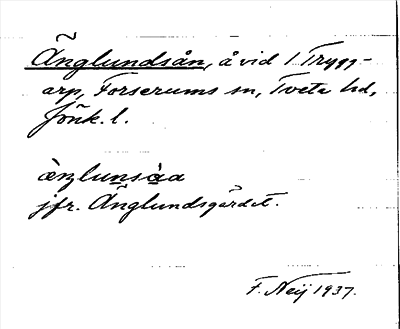 Änglundsån, å vid 1 Trygg-
arp, Forserums sn, Tveta hd,
Jönk. l.
ä̀ŋlunsåa
jfr. Änglundsgärdet.
F. Neij 1937.